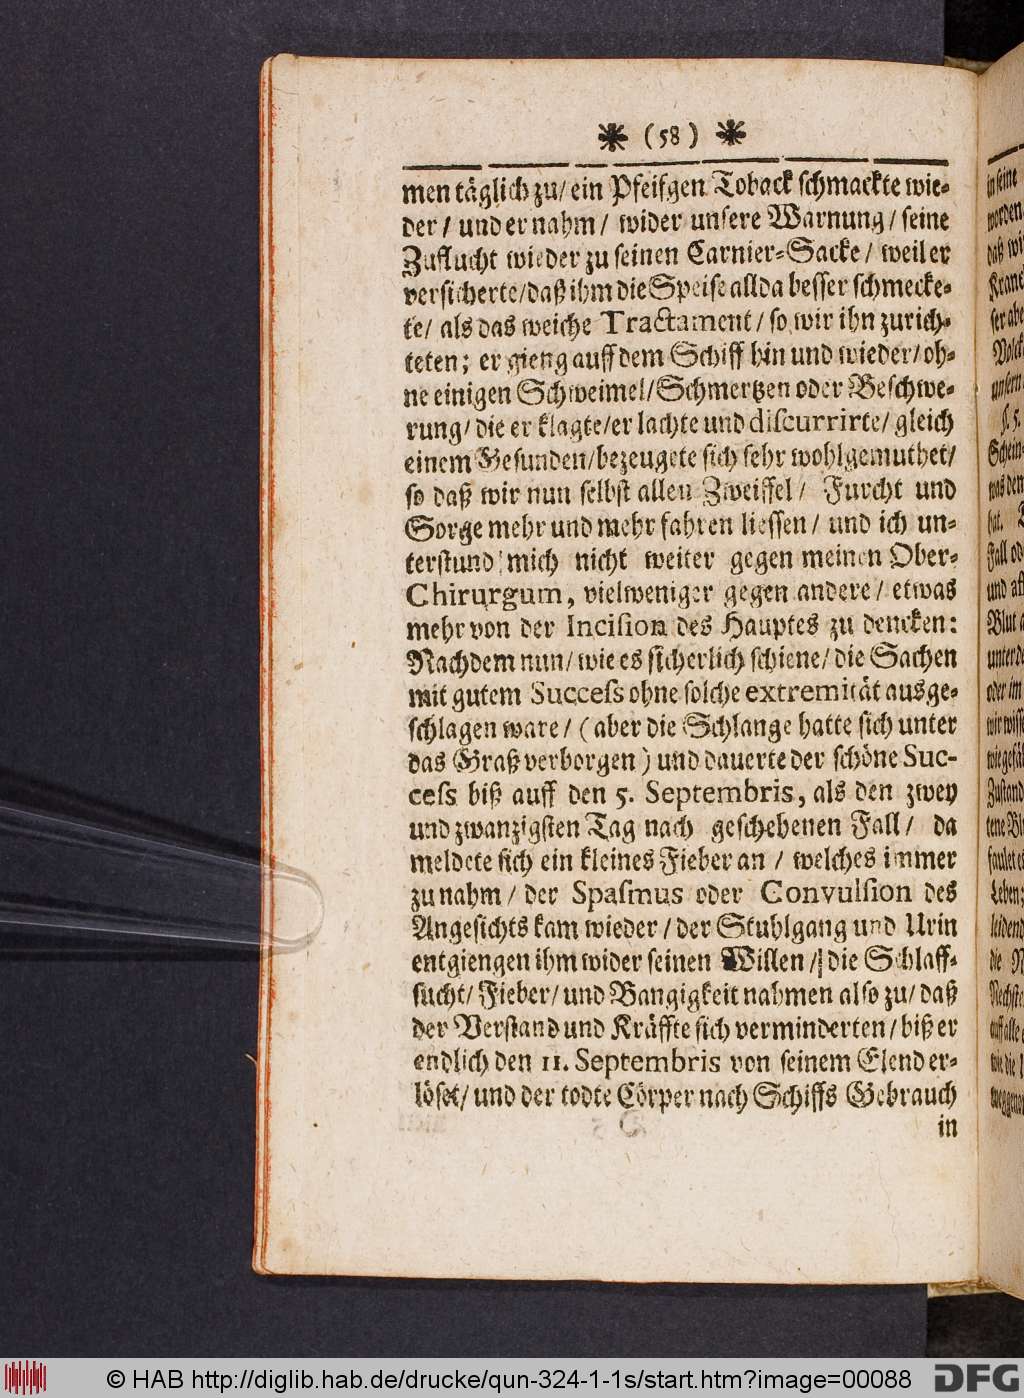 * (58) *
men täglich zu/ ein Pfeifgen Toback schmackte wie-
der/ und er nahm/ wider unsere Warnung/ seine
Zuflucht wieder zu seinen Carnier-Sacke/ weil er
versicherte/ daß ihm die Speise allda besser schmecke-
te/ als das weiche Tractament/ so wir ihn zurich-
teten; er gieng auff dem Schiff hin und wieder/ oh-
ne einigen Schweimel/ Schmertzen oder Beschwe-
rung/ die er klagte/ er lachte und discurrirte/ gleich
einem Gesunden/ bezeugete sich sehr wohlgemuthet/
so daß wir nun selbst allen Zweiffel/ Furcht und
Sorge mehr und mehr fahren liessen/ und ich un-
terstund mich nicht weiter gegen meinen Ober-
Chirurgum, vielweniger gegen andere/ etwas
mehr von der Incision des Hauptes zu dencken:
Nachdem nun/ wie es sicherlich schiene/ die Sachen
mit gutem Success ohne solche extremität ausge-
schlagen ware/ (aber die Schlange hatte sich unter
das Graß verborgen) und dauerte der schöne Suc-
cess biß auff den 5. Septembris, als den zwey
und zwanzigsten Tag nach geschehenen Fall/ da
meldete sich ein kleines Fieber an/ welches immer
zu nahm/ der Spasmus oder Convulsion des
Angesichts kam wieder/ der Stuhlgang und Urin
entgiengen ihm wider seinen Willen/ die Schlaff-
sucht/ Fieber/ und Bangigkeit nahmen also zu/ daß
der Verstand und Kräffte sich verminderten/ biß er
endlich den 11. Septembris von seinem Elend er-
löset/ und der todte Cörper nach Schiffs Gebrauch
in
in seine
worden
daß wir
ser aber
unsern
§. 5.
Schein-
was den
hat.
Fall od
und
Blut a
unter de
oder im
wir wisse
wie gefäh
Zustand
tene Bl
faulet es
Leben;
leidend
die
Nechste
auff alle
wie die
weggeno
© HAB http://diglib.hab.de/drucke/qun-324-1-1s/start.htm?image=00088
DFG